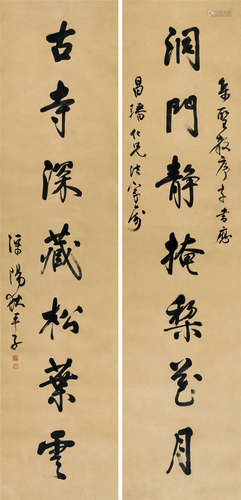 集聖教序字書應
洞門靜掩梨花月
昌璠仁兄法家屬
古寺深藏松葉雲
溧陽狄平子